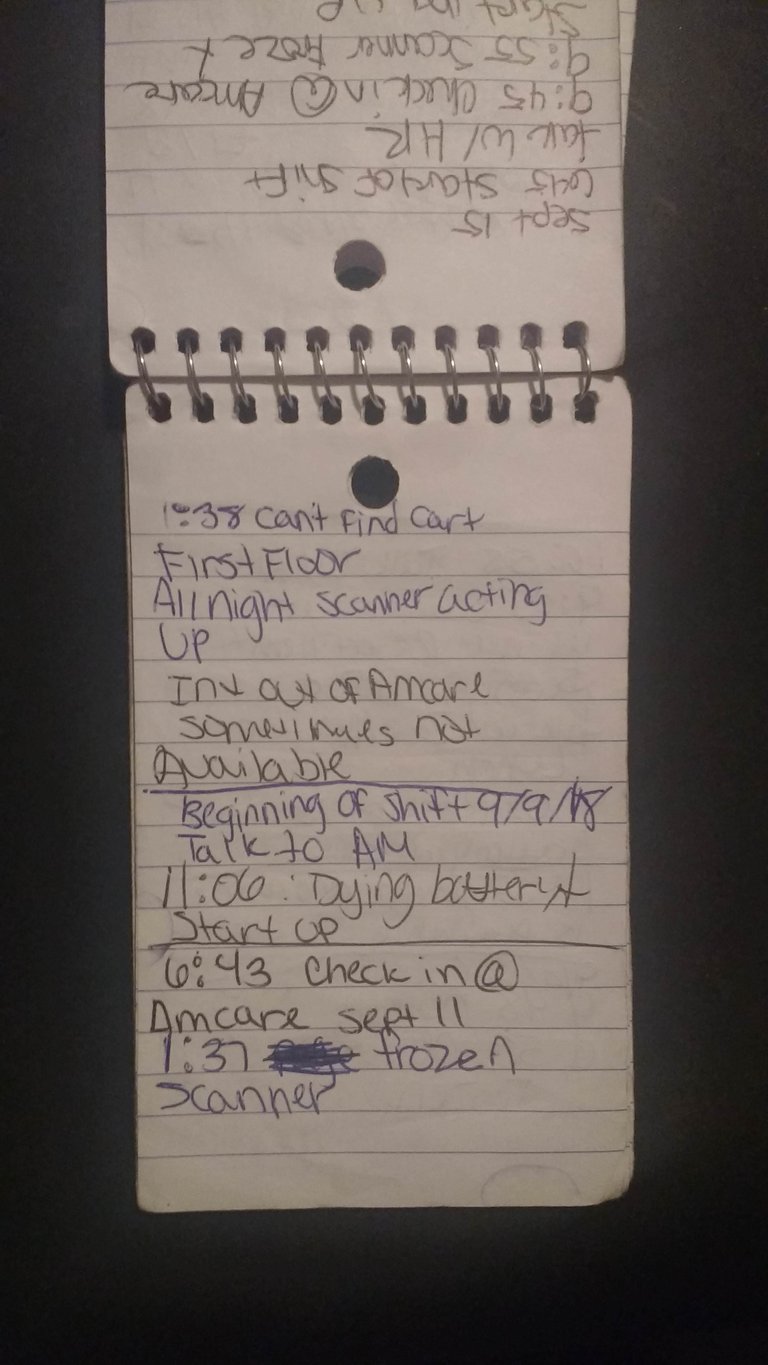 Sept 15
6:45 start of shift
talk w/ HR
9:45 Check in @ Amcare
9:55 Scanner froze +
Start up
1:38 can't find cart
First Floor
All night scanner acting
up
Int out of Amcare
sometimes not
Available
Beginning of shift 9/9/18
Talk to AM
11:06 : Dying battery +
Start up
6:43 check in @
Amcare sept 11
1:37 frozen
Scanner